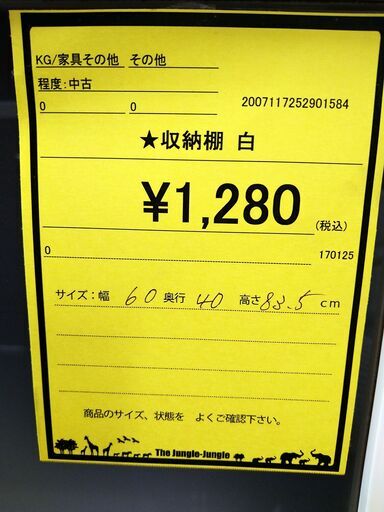 KG/家具その他 その他
程度:中古
0 0 2007117252901584
★収納棚 白
¥1,280 (税込)
0 170125
サイズ:幅 60 奥行 40 高さ 83.5 cm
商品のサイズ、状態を よくご確認下さい。
The Jungle-Jungle